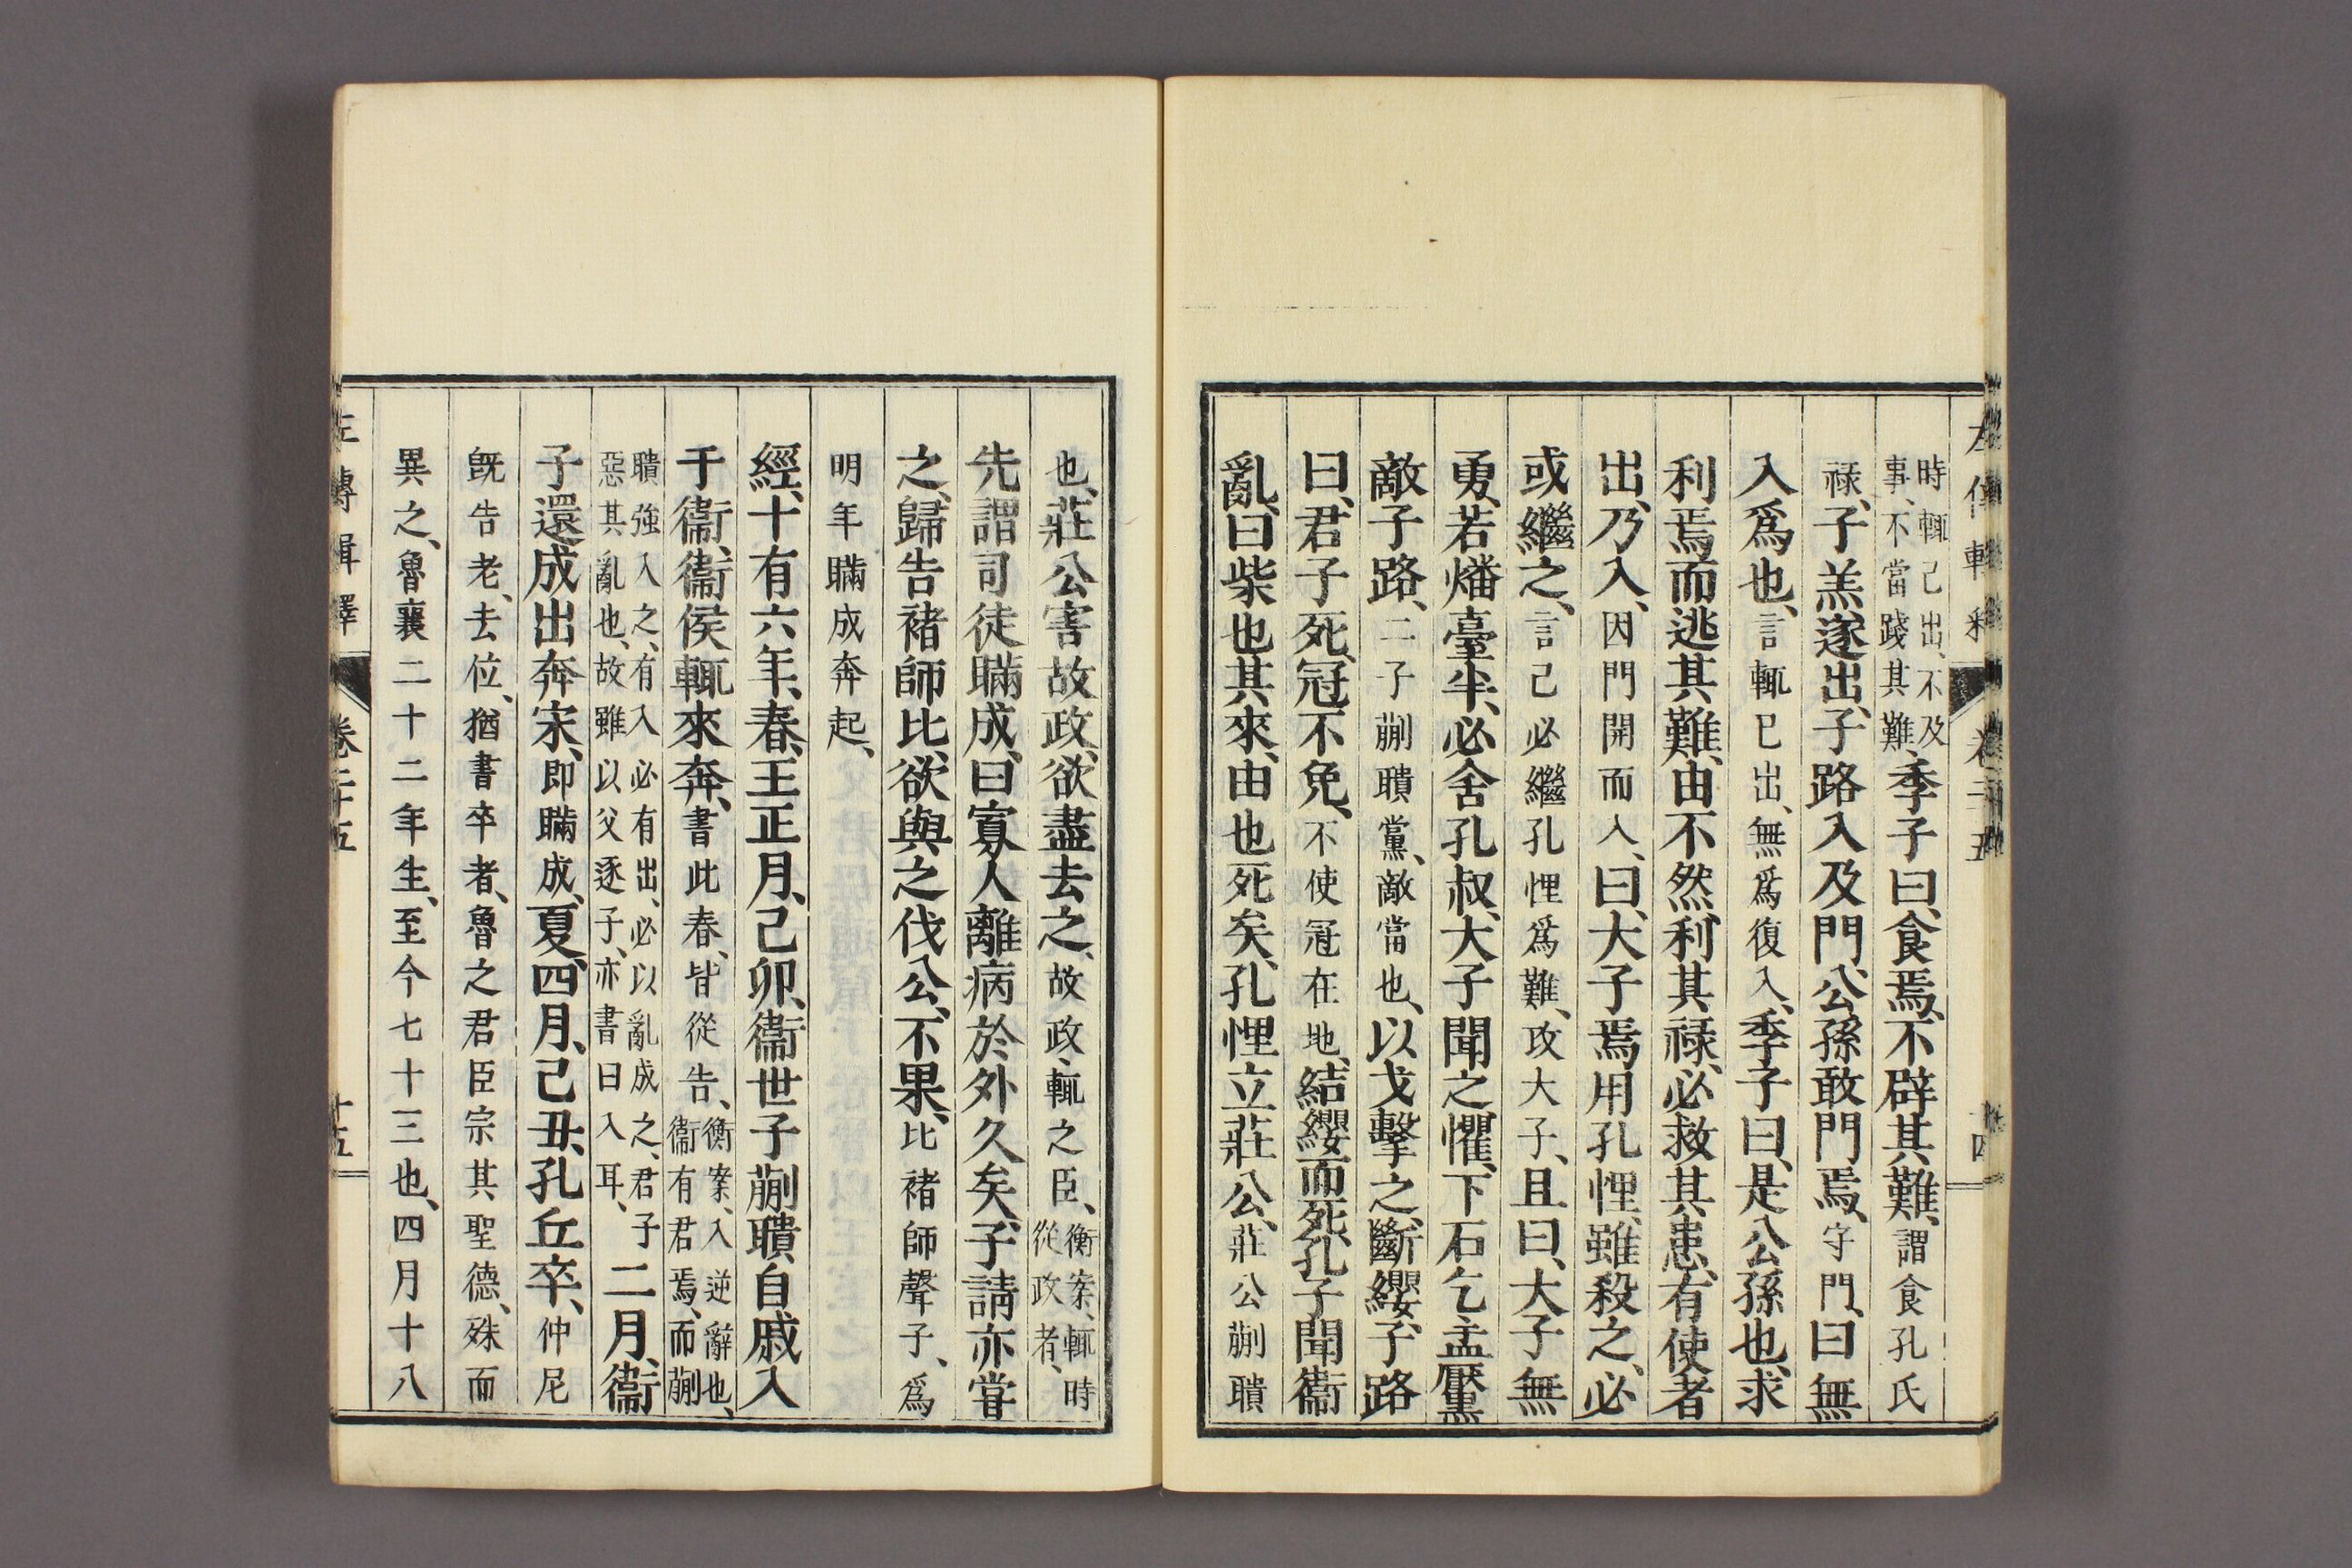 時輒己出、不及
事、不當踐其難、季子曰、食焉、不辟其難、謂食孔氏
祿、子羔遂出、子路入及門、公孫敢門焉、守門、曰無
入爲也、言輒已出、無爲復入、季子曰、是公孫也、求
利焉而逃其難、由不然、利其祿、必救其患、有使者
出、乃入、因門開而入、曰、大子焉用孔悝、雖殺之、必
或繼之、言己必繼孔悝爲難、攻大子、且曰、大子無
勇、若燔臺半、必舍孔叔、大子聞之懼、下石乞盂黶
敵子路、二子蒯聵黨、敵當也、以戈擊之、斷纓、子路
曰、君子死、冠不免、不使冠在地、結纓而死、孔子聞衞
亂、曰柴也其來、由也死矣、孔悝立莊公、莊公蒯聵
也、莊公害故政、欲盡去之、故政、輒之臣、衡案、輒時
從政者、
先謂司徒瞞成、曰寡人離病於外久矣、子請亦嘗
之、歸告褚師比、欲與之伐公、不果、比褚師聲子、爲
明年瞞成奔起、
經、十有六年、春、王正月、己卯、衞世子蒯聵自戚入
于衞、衞侯輒來奔、書此春、皆從告、衡案、入逆辭也、
衞有君焉、而蒯
聵強入之、有入必有出、必以亂成之、君子
惡其亂也、故雖以父逐子、亦書曰入耳、二月、衞
子還成出奔宋、即瞞成、夏、四月、己丑、孔丘卒、仲尼
既告老、去位、猶書卒者、魯之君臣宗其聖德、殊而
異之、魯襄二十二年生、至今七十三也、四月十八
左傳輯釋 卷二十五 十五